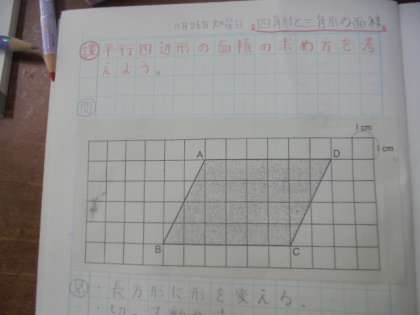 11月26日 火曜日 四角形と三角形の面積
課 平行四辺形の面積の求め方を考
えよう。
問
1cm
A D 1cm
B C
見 ・長方形に形を変える。